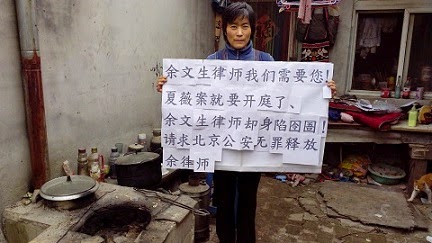 余文生律师我们需要您!
夏薇案就要开庭了、
余文生律师却身陷囹圄!
请求北京公安无罪释放
余律师